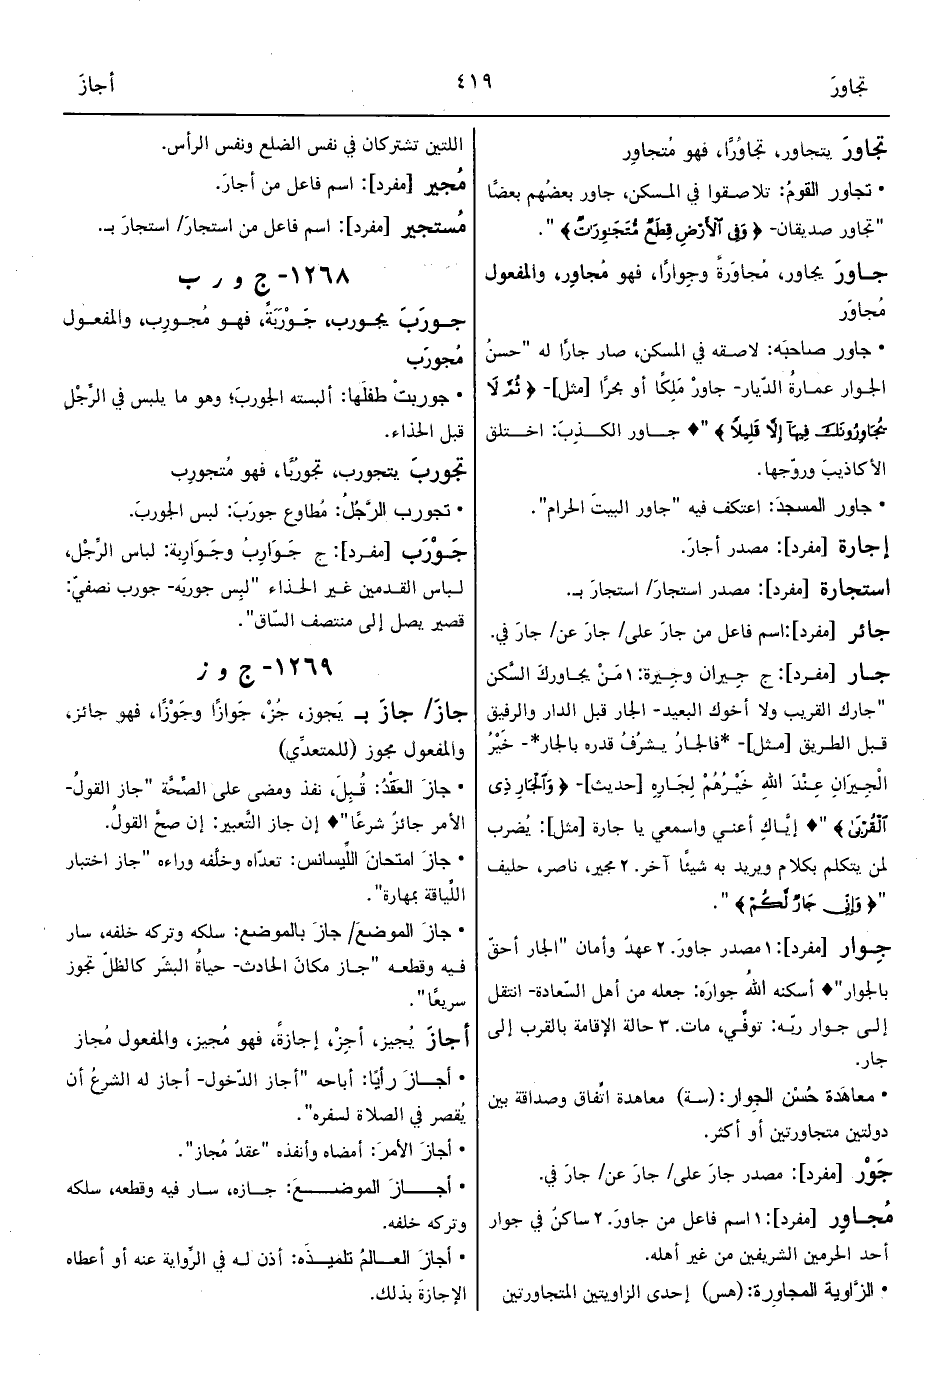 تجاورَ ٤١٩ أجازَ
تجاورَ يتجاور، تجاوُرًا، فهو مُتجاوِر
• تجاور القومُ: تلاصقوا في المسكن، جاور بعضُهم بعضًا
"تجاور صديقان- ﴿ وَفِي ٱلْأَرْضِ قِطَعٌ مُّتَجَٰوِرَٰتٌ ﴾ ".
جاورَ يجاور، مُجاوَرةً وجِوارًا، فهو مُجاوِر، والمفعول
مُجاوَر
• جاور صاحبَه: لاصقه في المسكن، صار جارًا له "حسنُ
الجوار عمارةُ الدّيار- جاورْ مَلِكًا أو بحرًا [مثل]- ﴿ ثُمَّ لَا
يُجَاوِرُونَكَ فِيهَآ إِلَّا قَلِيلًا ﴾ "♦ جاور الكذِبَ: اختلق
الأكاذيبَ وروّجها.
• جاور المسجدَ: اعتكف فيه "جاور البيتَ الحرام".
إجارة [مفرد]: مصدر أجارَ.
استجارة [مفرد]: مصدر استجارَ/ استجارَ بـ.
جائر [مفرد]:اسم فاعل من جارَ على/ جارَ عن/ جارَ في.
جار [مفرد]: ج جِيران وجِيرة: ١ مَنْ يجاورك السَّكن
"جارك القريب ولا أخوك البعيد- الجار قبل الدار والرفيق
قبل الطريق [مثل]- *فالجارُ يشرُفُ قدره بالجار*- خَيْرُ
الْجِيرَانِ عِنْدَ اللهِ خَيْرُهُمْ لِجَارِهِ [حديث]- ﴿ وَٱلْجَارِ ذِى
ٱلْقُرْبَىٰ ﴾ "♦ إيَّاكِ أعني واسمعي يا جارة [مثل]: يُضرب
لمن يتكلم بكلام ويريد به شيئًا آخر. ٢ مجير، ناصر، حليف
"﴿ وَإِنِّى جَارٌ لَّكُمْ ﴾ ".
جِوار [مفرد]: ١ مصدر جاورَ. ٢ عهدٌ وأمان "الجار أحقّ
بالجوار"♦ أسكنه اللهُ جوارَه: جعله من أهل السّعادة- انتقل
إلى جوار ربّه: توفِّي، مات. ٣ حالة الإقامة بالقرب إلى
جار.
• معاهَدة حُسْن الجِوار: (سة) معاهدة اتِّفاق وصداقة بين
دولتين متجاورتين أو أكثر.
جَوْر [مفرد]: مصدر جارَ على/ جارَ عن/ جارَ في.
مُجاوِر [مفرد]: ١ اسم فاعل من جاورَ. ٢ ساكنٌ في جوار
أحد الحرمين الشريفين من غير أهله.
• الزَّاوية المجاوِرة: (هس) إحدى الزاويتين المتجاورتين
اللتين تشتركان في نفس الضلع ونفس الرأس.
مُجير [مفرد]: اسم فاعل من أجارَ.
مُستجير [مفرد]: اسم فاعل من استجارَ/ استجارَ بـ.
١٢٦٨- ج و ر ب
جورَبَ يجورب، جَوْرَبَةً، فهو مُجورِب، والمفعول
مُجورَب
• جوربتْ طفلَها: ألبسته الجوربَ؛ وهو ما يلبس في الرِّجْلِ
قبل الحذاء.
تجوربَ يتجورب، تجورُبًا، فهو مُتجورِب
• تجورب الرَّجُلُ: مُطاوع جورَبَ: لبس الجوربَ.
جَوْرَب [مفرد]: ج جَوَارِبُ وجَوَارِبة: لباس الرِّجْل،
لباس القدمين غير الحذاء "لبِس جوربَه- جورب نصفيّ:
قصير يصل إلى منتصف السّاق".
١٢٦٩- ج و ز
جازَ/ جازَ بـ يَجوز، جُزْ، جَوازًا وجَوْزًا، فهو جائز،
والمفعول مجوز (للمتعدِّي)
• جازَ العَقْدُ: قُبِلَ، نفذ ومضى على الصِّحَّة "جاز القولُ-
الأمر جائزٌ شرعًا"♦ إن جاز التَّعبير: إن صحَّ القولُ.
• جازَ امتحانَ اللِّيسانس: تعدّاه وخلَّفه وراءه "جاز اختبار
اللِّياقة بمهارة".
• جازَ الموضعَ/ جازَ بالموضع: سلكه وتركه خلفه، سار
فيه وقطعه "جاز مكانَ الحادث- حياةُ البشَر كالظلّ تجوز
سريعًا".
أجازَ يُجيز، أجِزْ، إجازةً، فهو مُجيز، والمفعول مُجاز
• أجازَ رأيًا: أباحه "أجاز الدّخول- أجاز له الشرعُ أن
يُقصر في الصلاة لسفره".
• أجازَ الأمرَ: أمضاه وأنفذه "عقدٌ مُجاز".
• أجازَ الموضعَ: جازه، سار فيه وقطعه، سلكه
وتركه خلفه.
• أجازَ العالمُ تلميذَه: أذن له في الرِّواية عنه أو أعطاه
الإجازةَ بذلك.